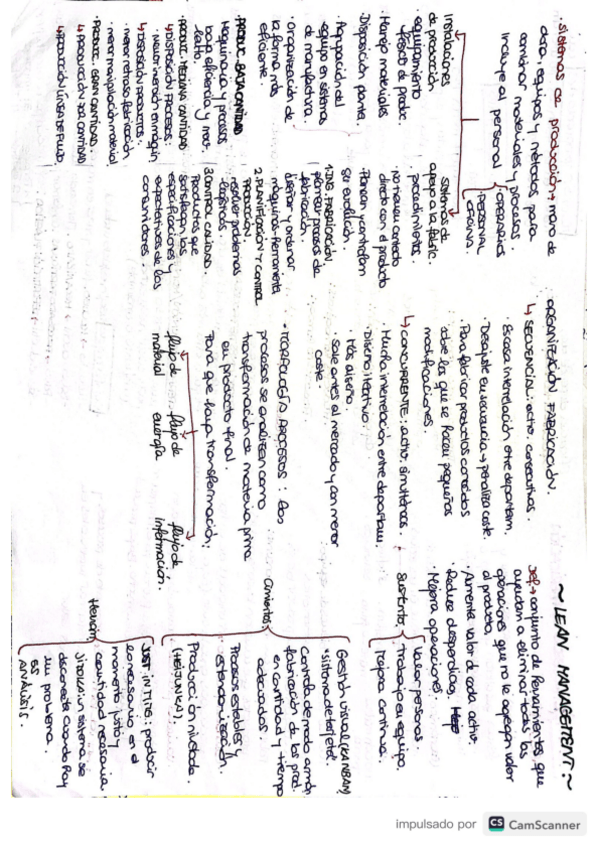 • Sistemas de producción → mano de
obra, equipos y métodos para
combinar materiales y procesos.
incluye al personal
OPERARIOS
PERSONAL
OFICINA.
Instalaciones
de producción
• equipamiento
• Manejo materiales
• Disposición planta.
• Agrupación del
equipo en sistemas
de manufactura.
• Organización de
la forma más
eficiente.
• PRODUC. BAJA CANTIDAD
Maquinaria y procesos
baja eficiencia y más
lentos.
• PRODUC. MEDIANA CANTIDAD
↳ DISPOSICIÓN PROCESOS:
• mayor inversión en máquin
↳ DISPOSICIÓN PRODUCTOS:
• menor retraso fabricación.
• menor manipulación material
• PRODUC. GRAN CANTIDAD.
↳ PRODUCCIÓN POR CANTIDAD
↳ PRODUCCIÓN LÍNEA DE FLUJO.
Sistemas de
apoyo a la fabric.
• procedimientos.
• no tienen contacto
directo con el producto
• Planean y controlan
su evolución.
1. ING. FABRICACIÓN.
plantear procesos de
fabricación.
diseñar y ordenar
máquinas-herramienta
2. PLANIFICACIÓN Y CONTROL
PRODUCCIÓN.
resolver problemas
logísticos.
3. CONTROL CALIDAD.
Productos que
satisfagan las
especificaciones y
expectativas de los
consumidores.
ORGANIZACIÓN FABRICACIÓN.
↳ SECUENCIAL: activ. consecutivas.
• Escasa interrelación entre departam.
• Desajuste en secuencia → penaliza coste.
• Para fabricar productos conocidos
sobre los que se hacen pequeñas
modificaciones.
↳ CONCURRENTE: activ. simultáneas.
• Mucha interrelación entre departam.
• Diseño iterativo.
• Más diseño.
• Sale antes al mercado y con menor
coste.
• MORFOLOGÍA PROCESOS: los
procesos se analizan como
transformación de materia prima
en producto final.
Para que haya transformación:
flujo de
material
flujo de
energía
flujo de
información.
~ LEAN MANAGEMENT: ~
Def → conjunto de herramientas que
ayudan a eliminar todas las
operaciones que no le agregan valor
al producto.
• Aumenta valor de cada activ.
• Reduce desperdicios,
• Mejora operaciones.
Sustento
Valorar personas.
Trabajo en equipo.
Mejora continua.
Cimientos
Gestión visual (KANBAM)
"sistema de tarjetas".
Controla de modo armón.
fabricación de los prod.
en cantidad y tiempo
adecuados.
Procesos estables y
estandarización.
Producción nivelada.
(HEIJUNKA).
Herram.
JUST IN TIME: producir
lo necesario en el
momento justo y
cantidad necesaria
Jidoka: un sistema se
desconecta cuando hay
un problema.
5S
ANÁLISIS.
impulsado por CS CamScanner